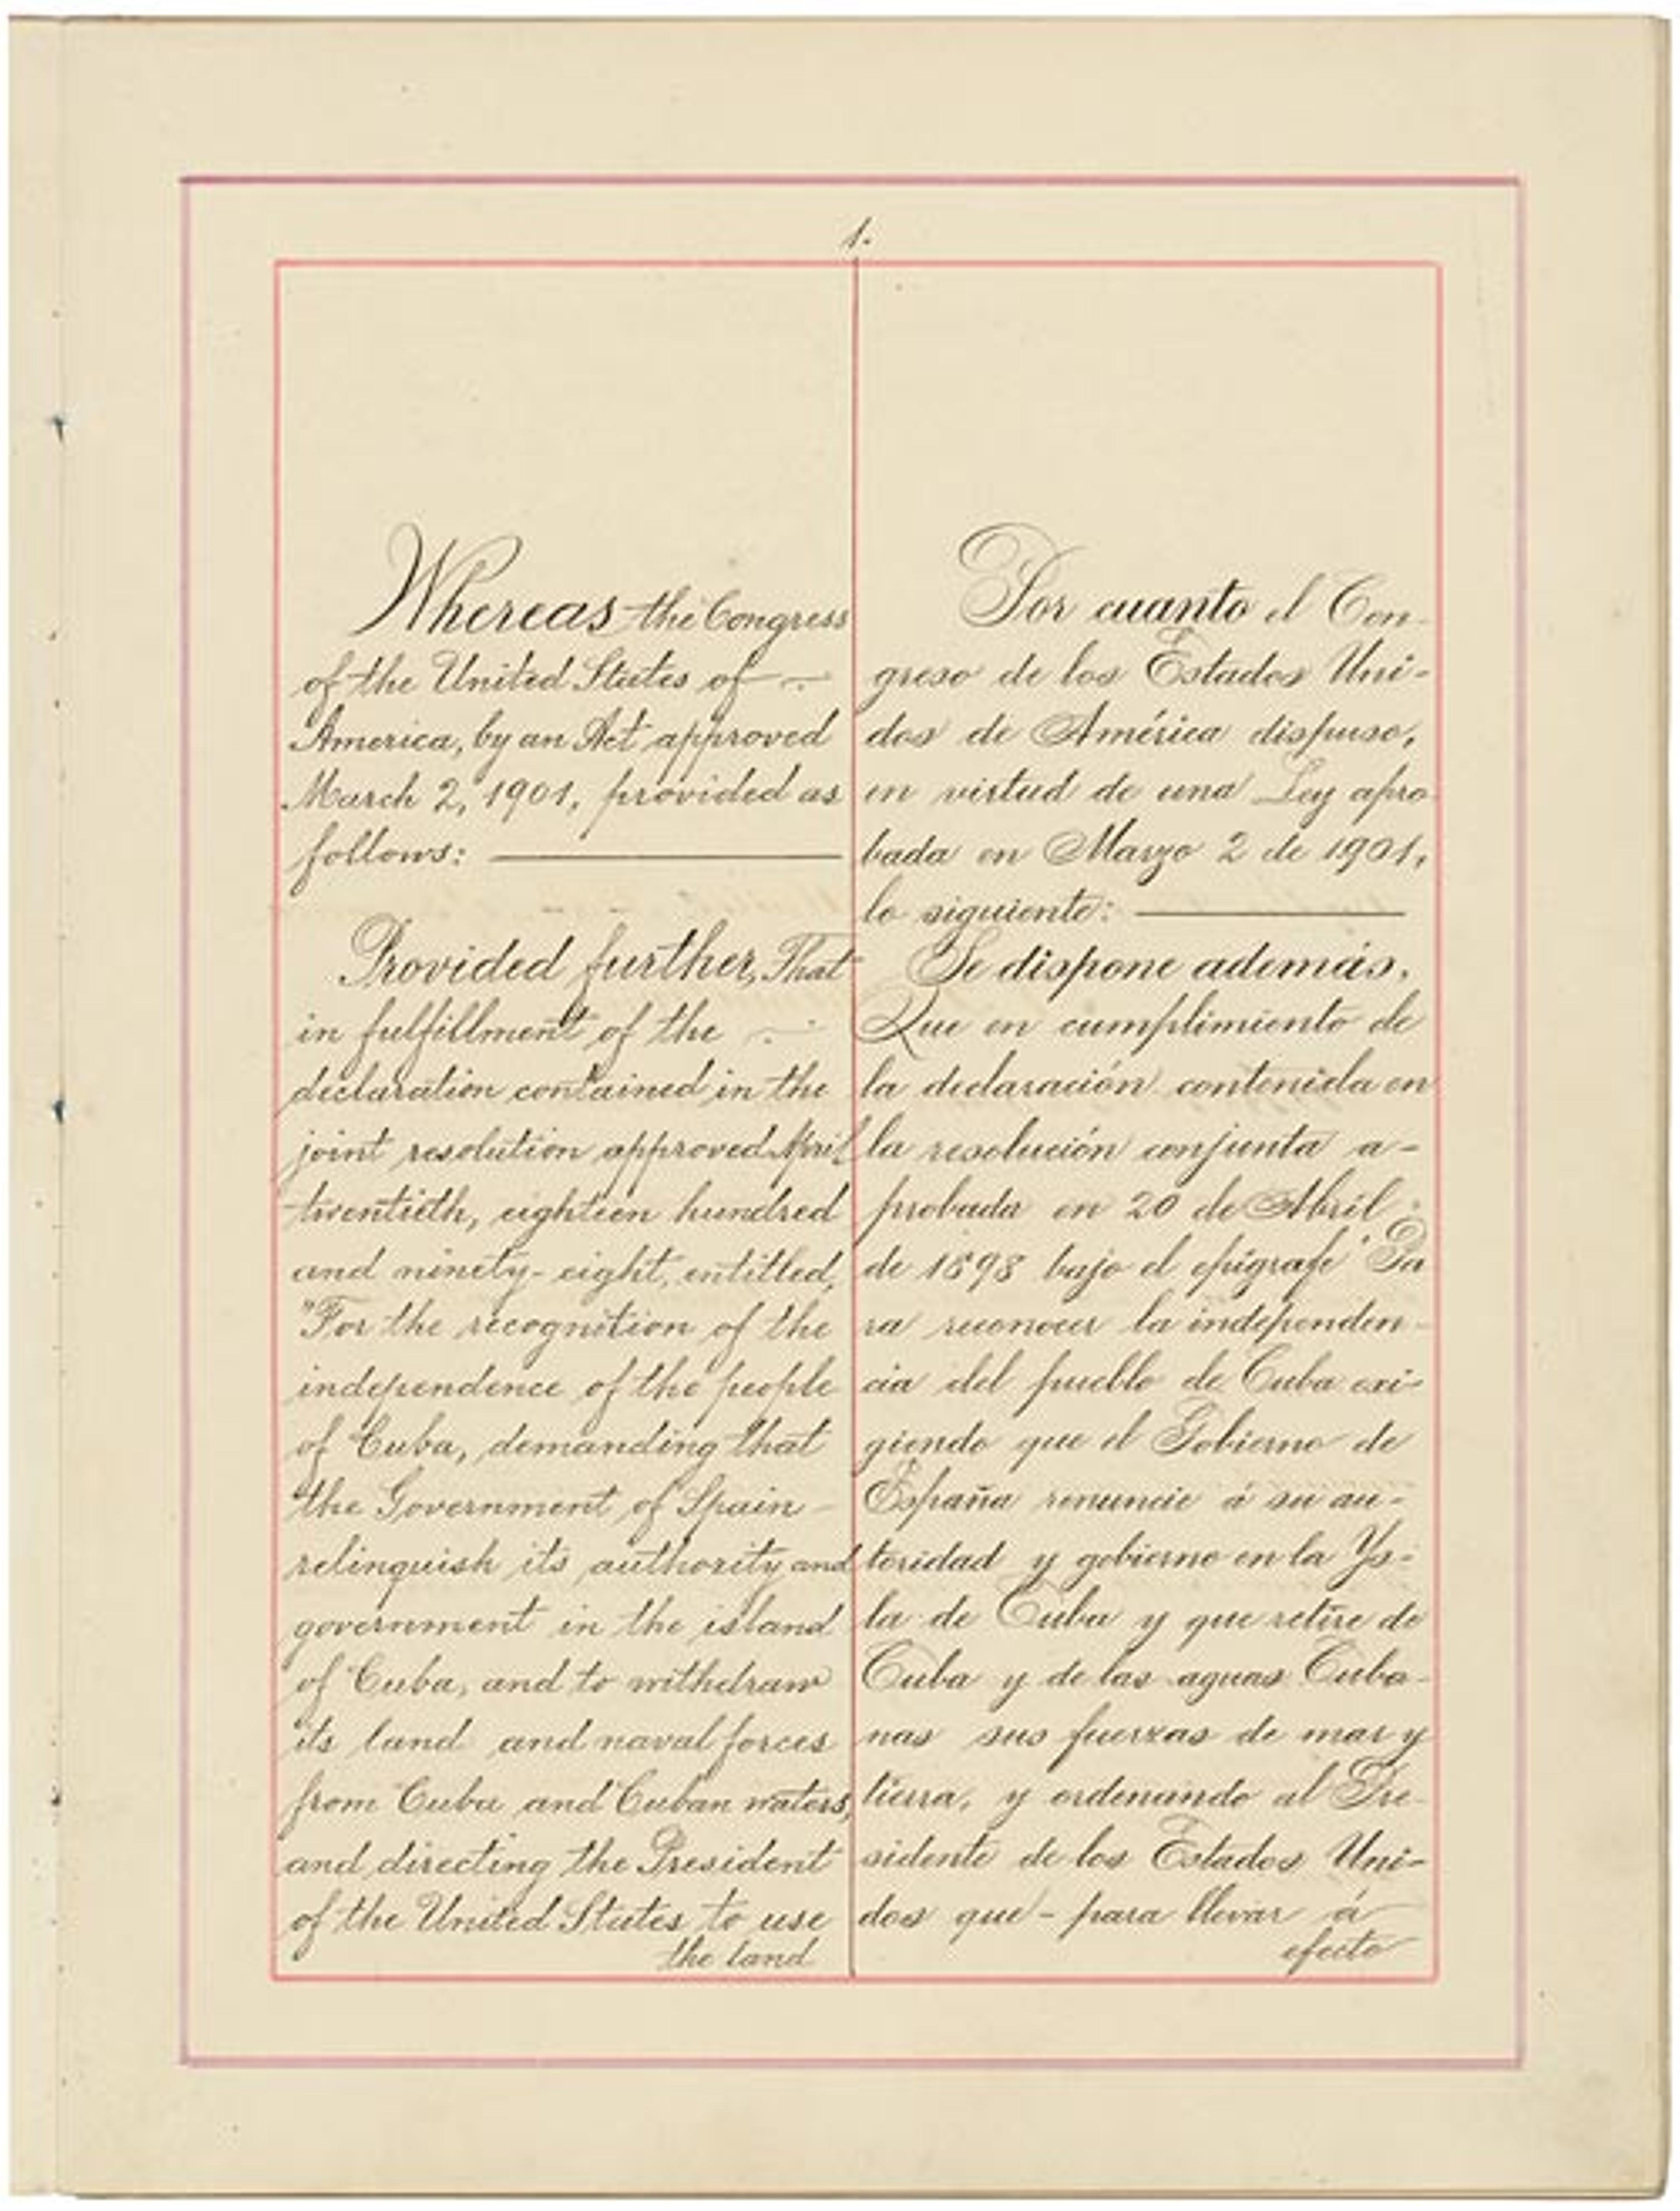 1.
Whereas the Congress
of the United States of
America, by an Act approved
March 2, 1901, provided as
follows:
Provided further, That
in fulfillment of the
declaration contained in the
joint resolution approved April
twentieth, eighteen hundred
and ninety-eight, entitled,
"For the recognition of the
independence of the people
of Cuba, demanding that
the Government of Spain
relinquish its authority and
government in the island
of Cuba, and to withdraw
its land and naval forces
from Cuba and Cuban waters,
and directing the President
of the United States to use
the land
Por cuanto el Con-
greso de los Estados Uni-
dos de América dispuso,
en virtud de una Ley apro
bada en Marzo 2 de 1901,
lo siguiente:
Se dispone además,
Que en cumplimiento de
la declaración contenida en
la resolución conjunta a-
probada en 20 de Abril
de 1898 bajo el epígrafe "Pa
ra reconocer la independen-
cia del pueblo de Cuba exi-
giendo que el Gobierno de
España renuncie á su au-
toridad y gobierno en la Ys-
la de Cuba y que retire de
Cuba y de las aguas Cuba-
nas sus fuerzas de mar y
tierra, y ordenando al Pre-
sidente de los Estados Uni-
dos que - para llevar á
efecto